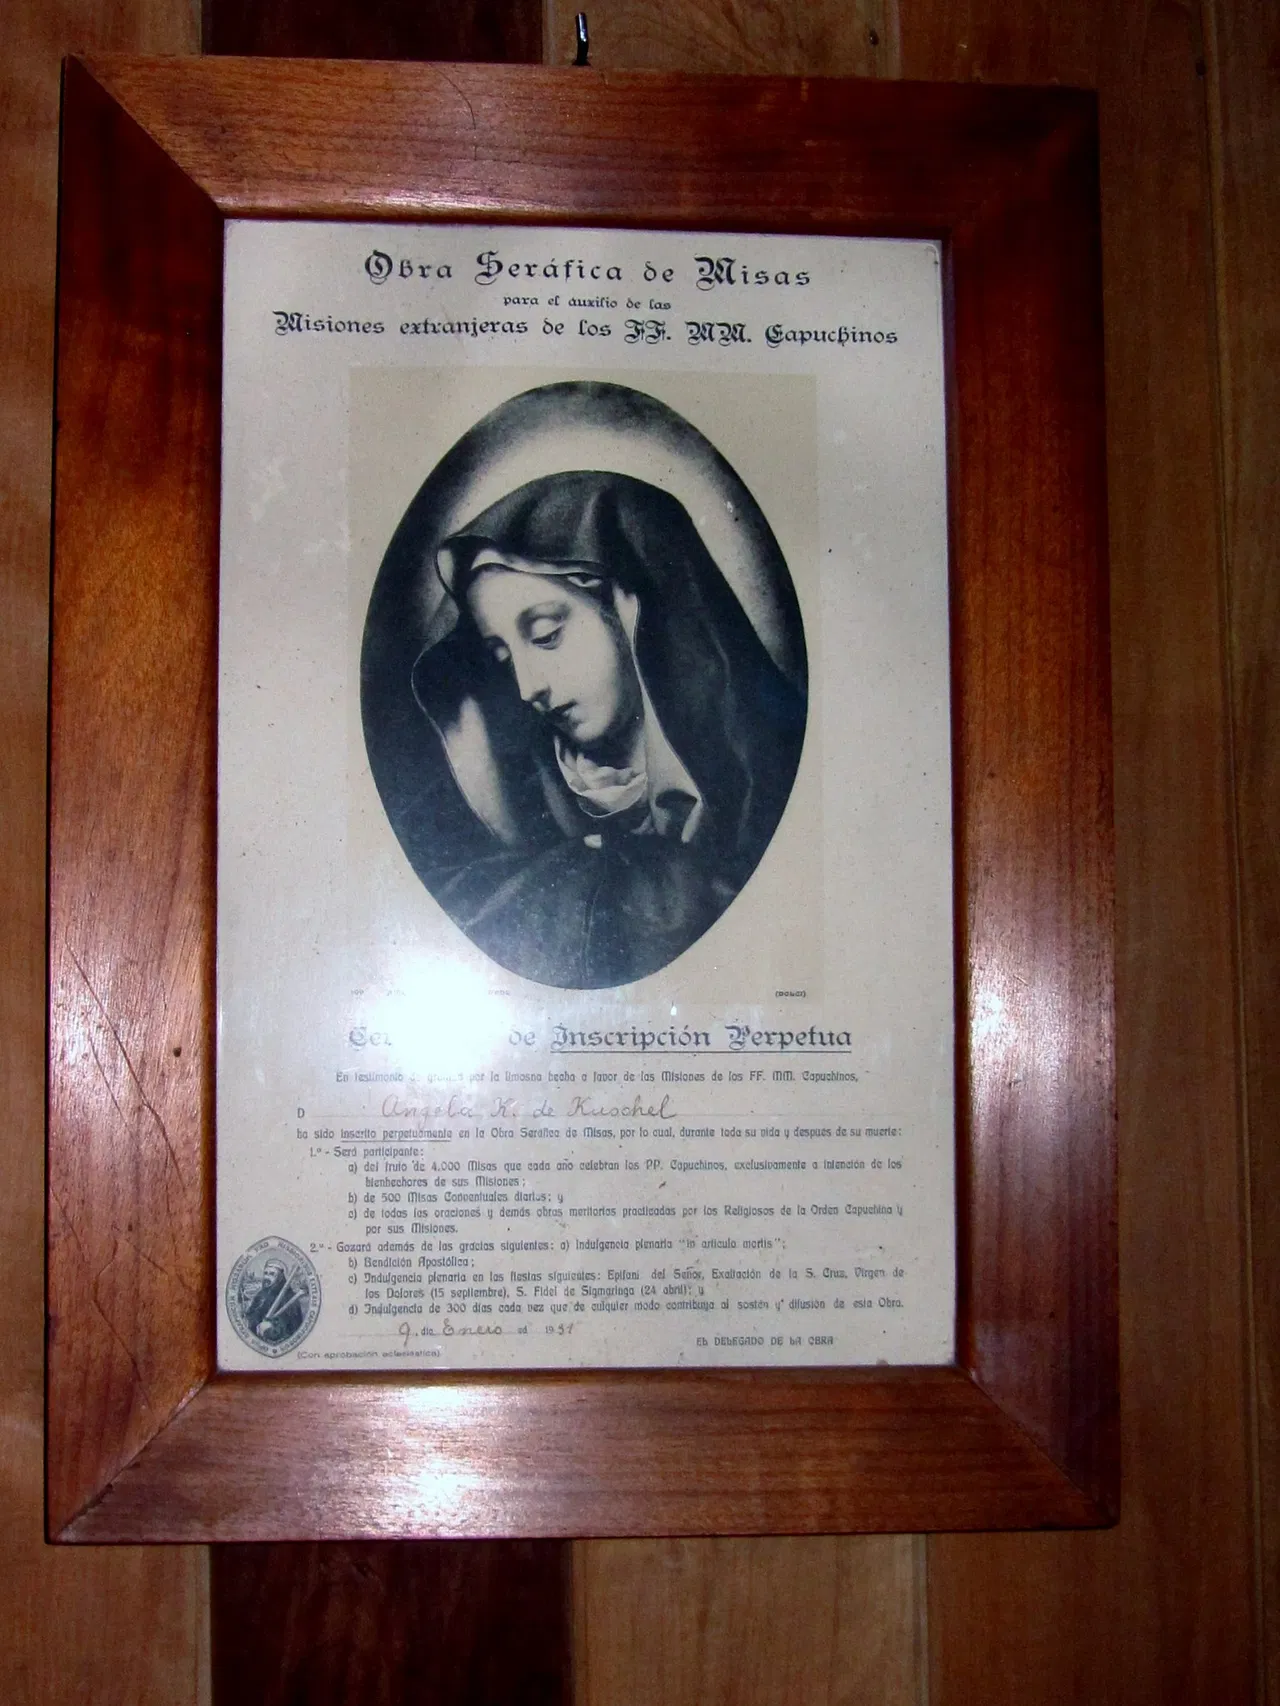 Obra Seráfica de Misas
para el auxilio de las
Misiones extranjeras de los FF. MM. Capuchinos
(DOLCI)
de Inscripción Perpetua
En testimonio de por la limosna hecha a favor de las Misiones de los FF. MM. Capuchinos,
D Angela K. de Kuschel
ha sido inscrito perpetuamente en la Obra Seráfica de Misas, por lo cual, durante toda su vida y despues de su muerte:
1.º - Será participante:
a) del fruto de 4.000 Misas que cada año celebran los PP. Capuchinos, exclusivamente a intención de los
bienhechores de sus Misiones;
b) de 500 Misas Conventuales diarias; y
c) de todas las oraciones y demás obras meritorias practicadas por los Religiosos de la Orden Capuchina y
por sus Misiones.
2.º - Gozará además de las gracias siguientes: a) Indulgencia plenaria "in articulo mortis";
b) Bendición Apostólica;
c) Indulgencia plenaria en las fiestas siguientes: Epifani del Señor, Exaltación de la S. Cruz, Virgen de
los Dolores (15 septiembre), S. Fidel de Sigmaringa (24 abril); y
d) Indulgencia de 300 días cada vez que de culquier modo contribuya al sostén y difusión de esta Obra.
9. día Enero ed 1931
EL DELEGADO DE LA OBRA
(Con aprobación eclesiástica)